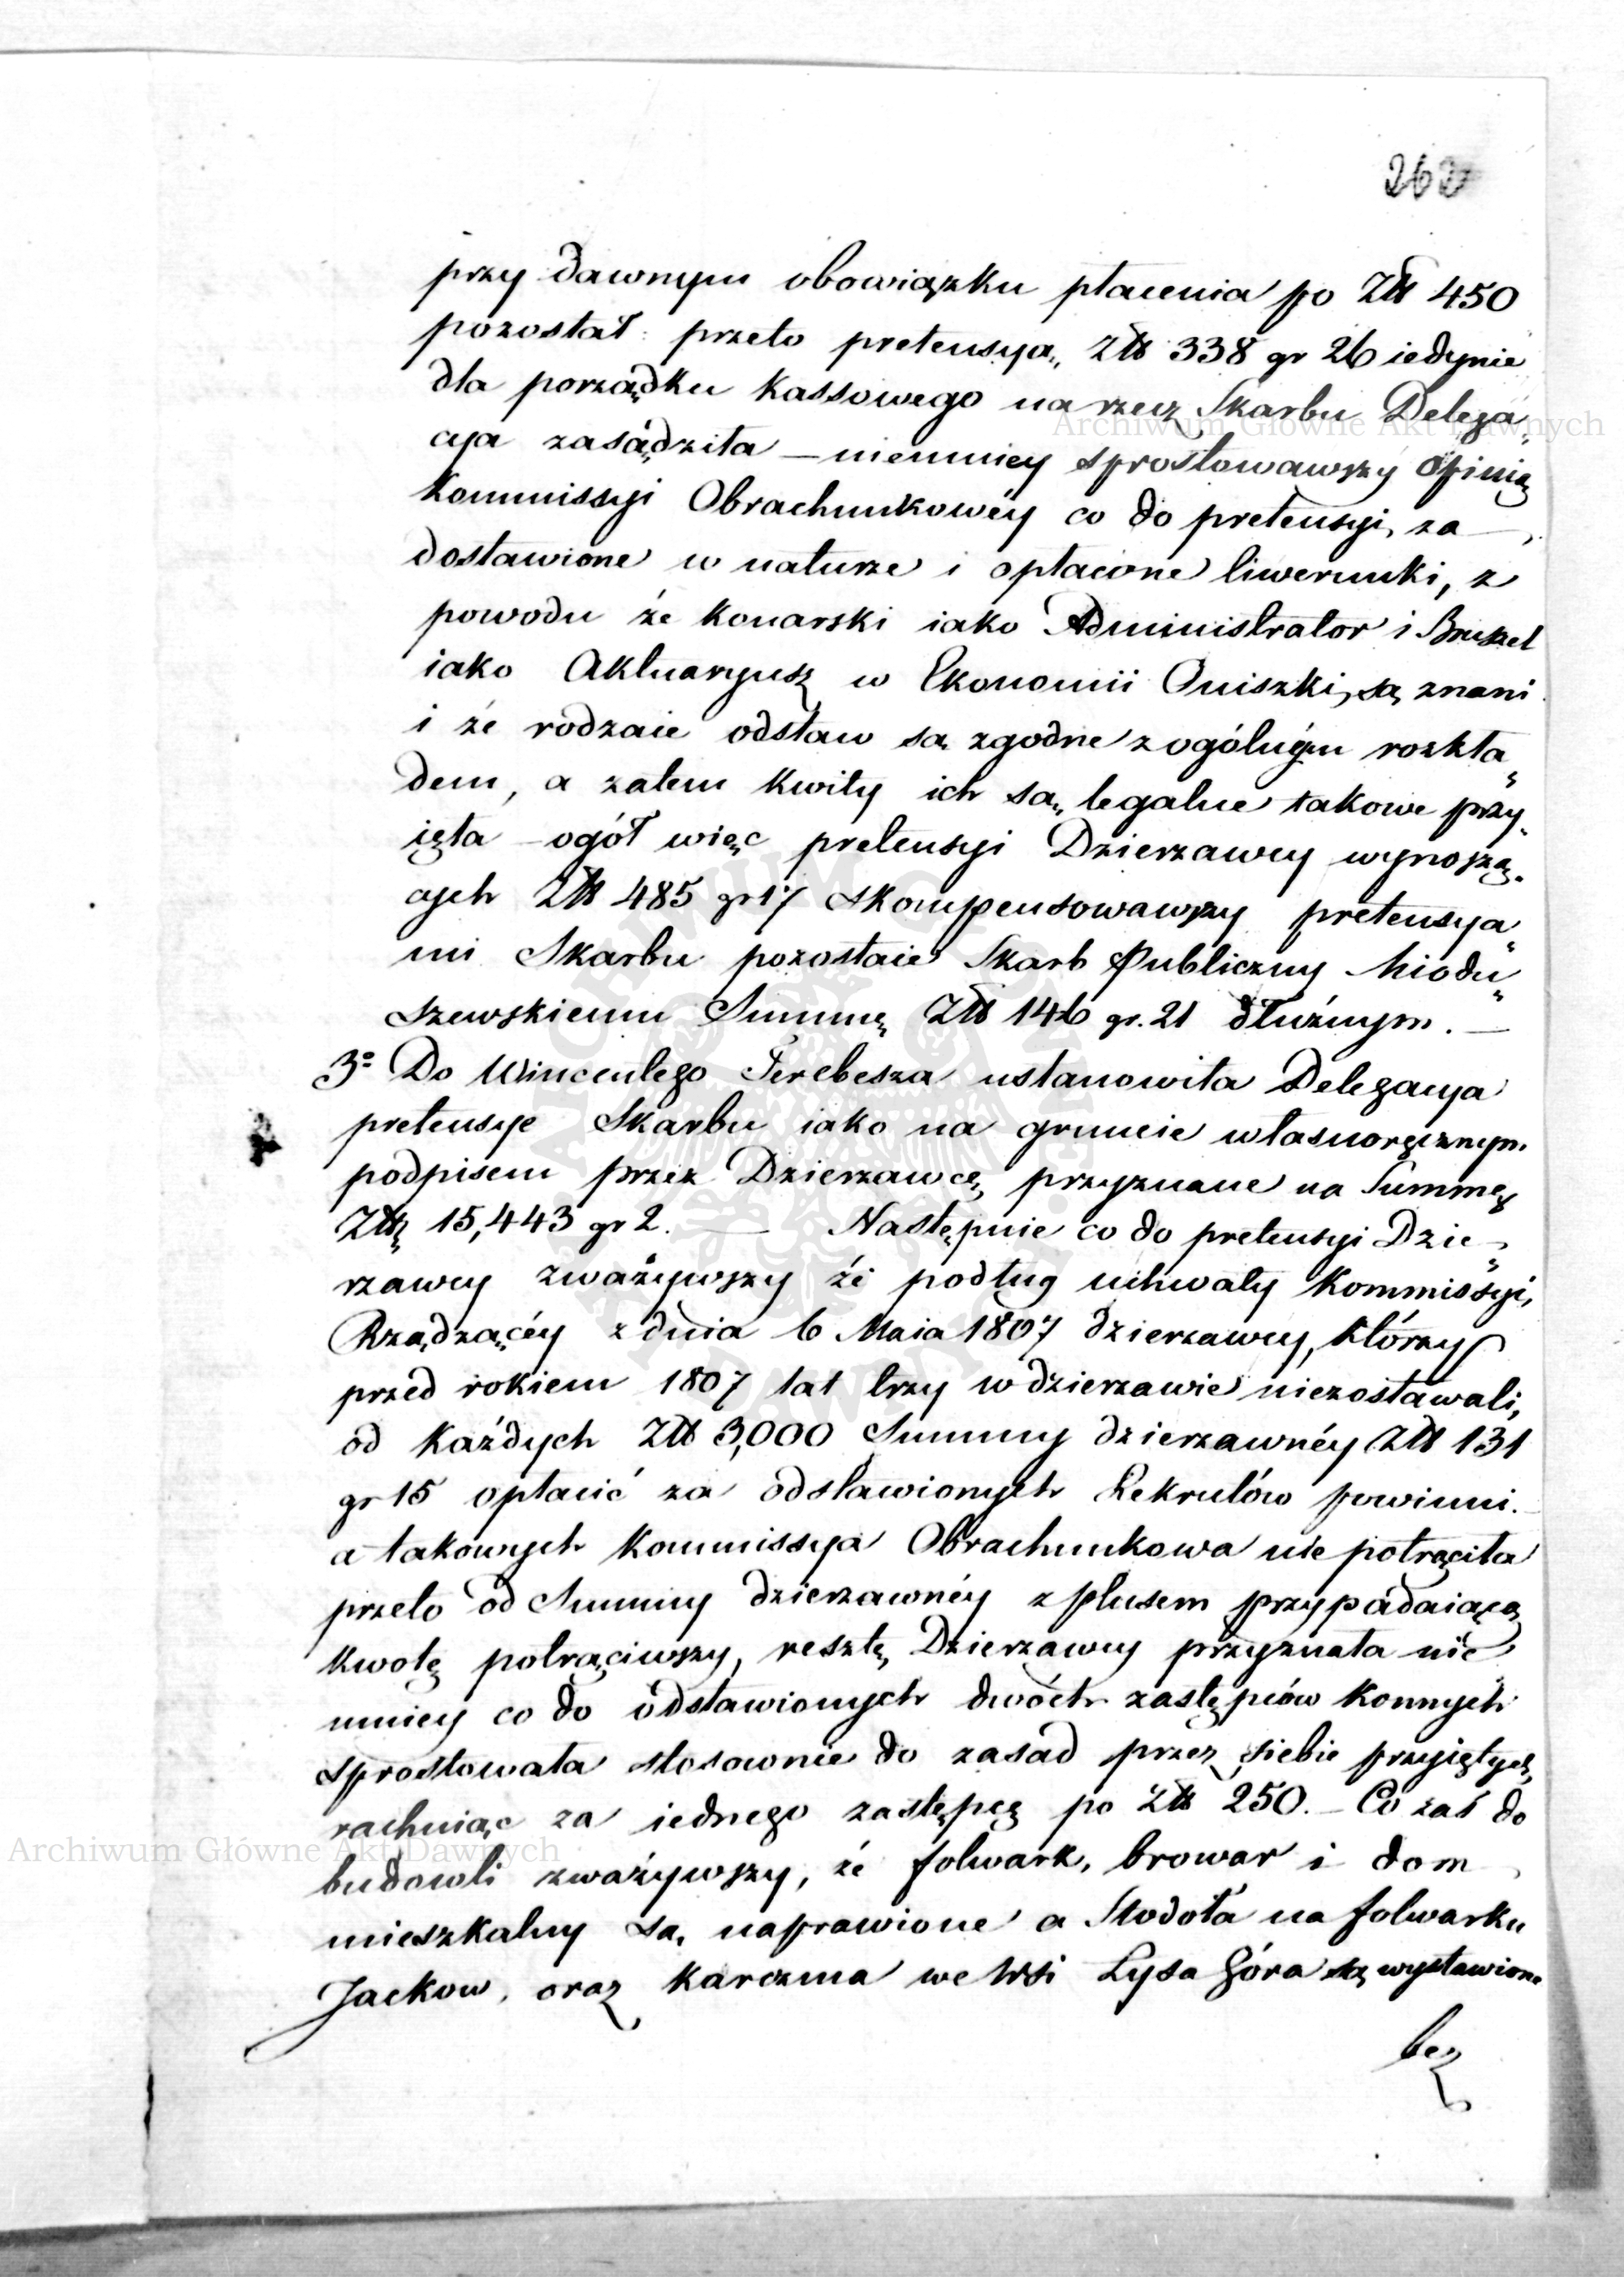 262
przy dawnym obowiązku płacenia po Złł 450
pozostał: przeto pretensya„ Złł 338 gr 26 iedynie
dla porządku Kassowego na rzecz Skarbu Delega„
cya zasądziła — niemniey sprostowawszy Opinią
Kommissyi Obrachunkowéy co do pretensyi, za —,
dostawione w naturze i opłacone liwerunki, z
powodu że Konarski iako Administrator i
iako Aktuaryusz w Ekonomii Oniszki, są znani
i że rodzaie odstaw są zgodne z ogólnym rozkła„
dem, a zatem Kwity ich są legalne takowe przy„
ięła — ogół więc pretensyi Dzierzawcy wynoszą„
cych Złł 485 gr 17 skompensowawszy pretensya„
mi Skarbu pozostaie Skarb Publiczny Miodu„
szewskiemu Summę Złł 146 gr. 21 dłużnym. —
3º Do Wincentego Ferebesza ustanowiła Delegacya
pretensye Skarbu iako na gruncie własnoręcznym
podpisem przez Dzierzawcę przyznane na Summę
Złł 15,443 gr 2. — Następnie co do pretensyi Dzie„
rzawcy zważywszy że podług uchwały Kommissyi,
Rządzącéy z dnia 6 Maia 1807 dzierzawcy, którzy
przed rokiem 1807 lat trzy w dzierzawie niezostawali,
od Każdych Złł 3,000 Summy dzierzawnéy Złł 131
gr 15 opłacić za odstawionych Rekrutów powinni.
a takowych Kommissya Obrachunkowa nie potrąciła
przeto od Summy dzierzawnéy z plusem przypadaiącą
Kwotę potrąciwszy, resztę Dzierzawcy przyznała nie
mniey co do odstawionych dwóch zastępców Konnych
sprostowała stosownie do zasad przez siebie przyiętych,
rachuiąc za iednego zastępcę po Złł 250. — Co zaś do
budowli zważywszy, że folwark, browar i dom
mieszkalny są naprawione a Stodoła na folwarku
Jackow, oraz Karczma we Wsi Łysa Góra są wystawione
bez
Archiwum Główne Akt Dawnych
Archiwum Główne Akt Dawnych